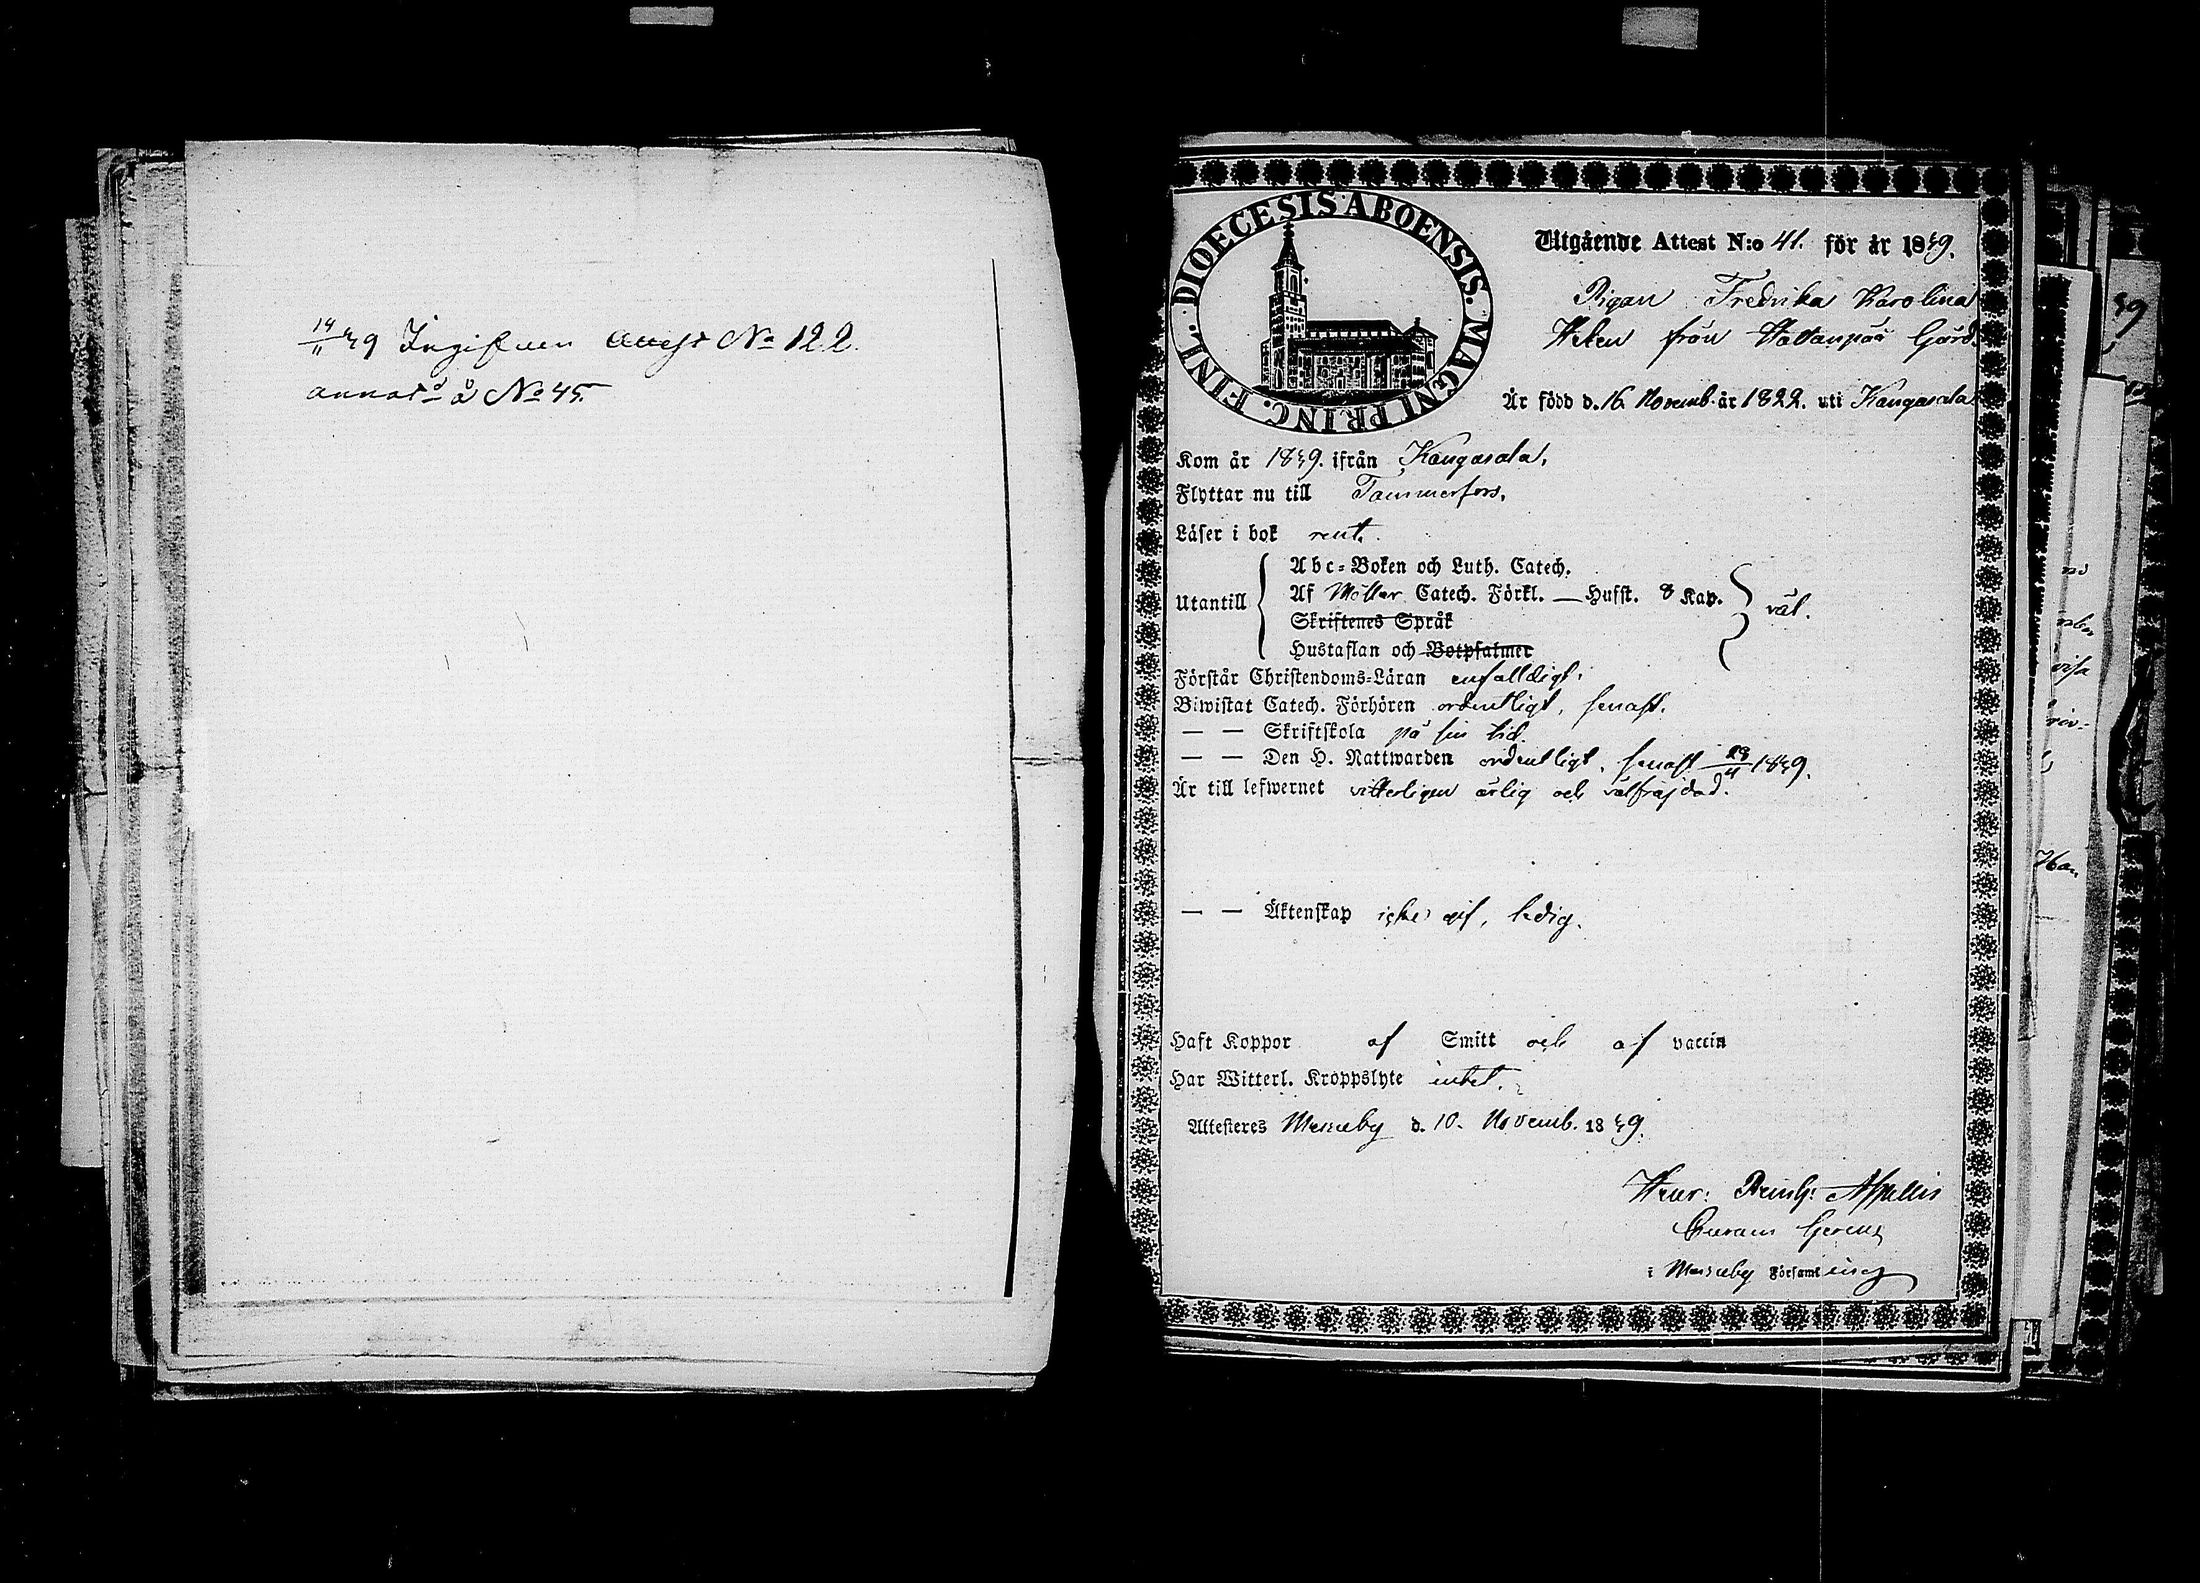 14/11 49 Ingifven Attest No 122.
annot:d å No 45.
DIOECESIS ABOENSIS. MAGNI PRINC. FINL.
Utgående Attest N:o 41. för år 1849.
Pigan Fredrika Karolina
från Hattanpää Gård.
Är född d. 16. Novemb. år 1822. uti Kangasala
Kom år 1849. ifrån Kangasala.
Flyttar nu till Tammerfors.
Läser i bok rent.
Utantill
Abc-Boken och Luth. Catech.
Af Möller Catech. Förkl. — Husst. 8 Kap.
Skriftenes Språk
Hustaflan och Botpsalmer
väl.
Förstår Christendoms-Läran enfalldigt.
Biwistat Catech. Förhören ordentligt, senast.
— — Skriftskola på sin tid.
— — Den H. Nattwarden ordentligt, senast 1849.
Är till lefwernet vitterligen ärlig och välfräjdad.
— — Äktenskap icke gif, ledig.
Haft Koppor af Smitt och af vaccin
Har Witterl. Kroppslyte intet.
Attesteres Messuby d. 10. Novemb. 1849.
Henr: Reinh: Aspellin
Curam Gerens
i Messuby Församling
49